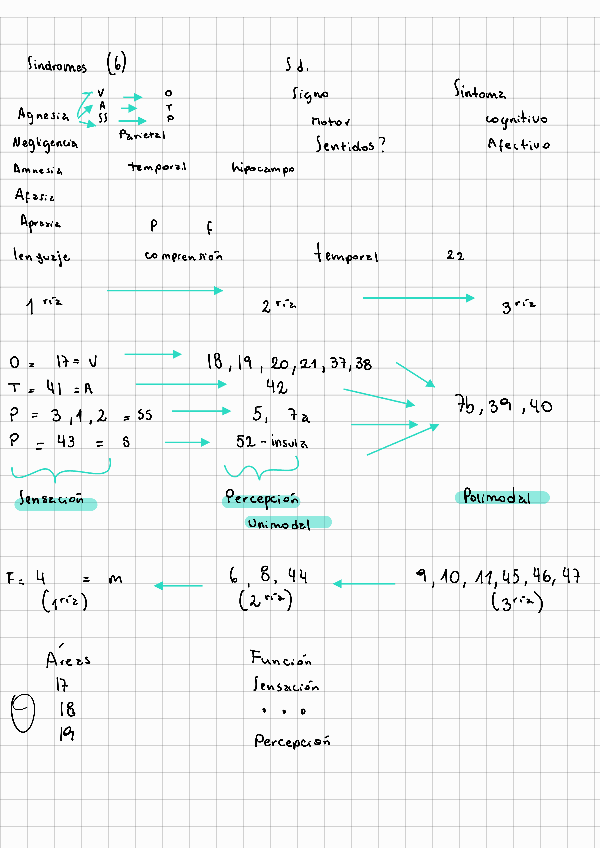 Síndromes (6) Sd.
V → O Signo Síntoma
Agnesia A → T
SS → P Motor cognitivo
Negligencia Parietal Sentidos? Afectivo
Amnesia temporal hipocampo
Afasia
Apraxia P F
lenguaje comprensión temporal 22
1 ria → 2 ria → 3 ria
O = 17 = V → 18, 19, 20, 21, 37, 38
T = 41 = A → 42
7b, 39, 40
P = 3, 1, 2 = SS → 5, 7a
P = 43 = S → 52 - insula
Sensación Percepción Polimodal
Unimodal
F = 4 = m ← 6, 8, 44 ← 9, 10, 11, 45, 46, 47
(1 ria) (2 ria) (3 ria)
Áreas Función
17 Sensación
18 . . .
19 Percepción